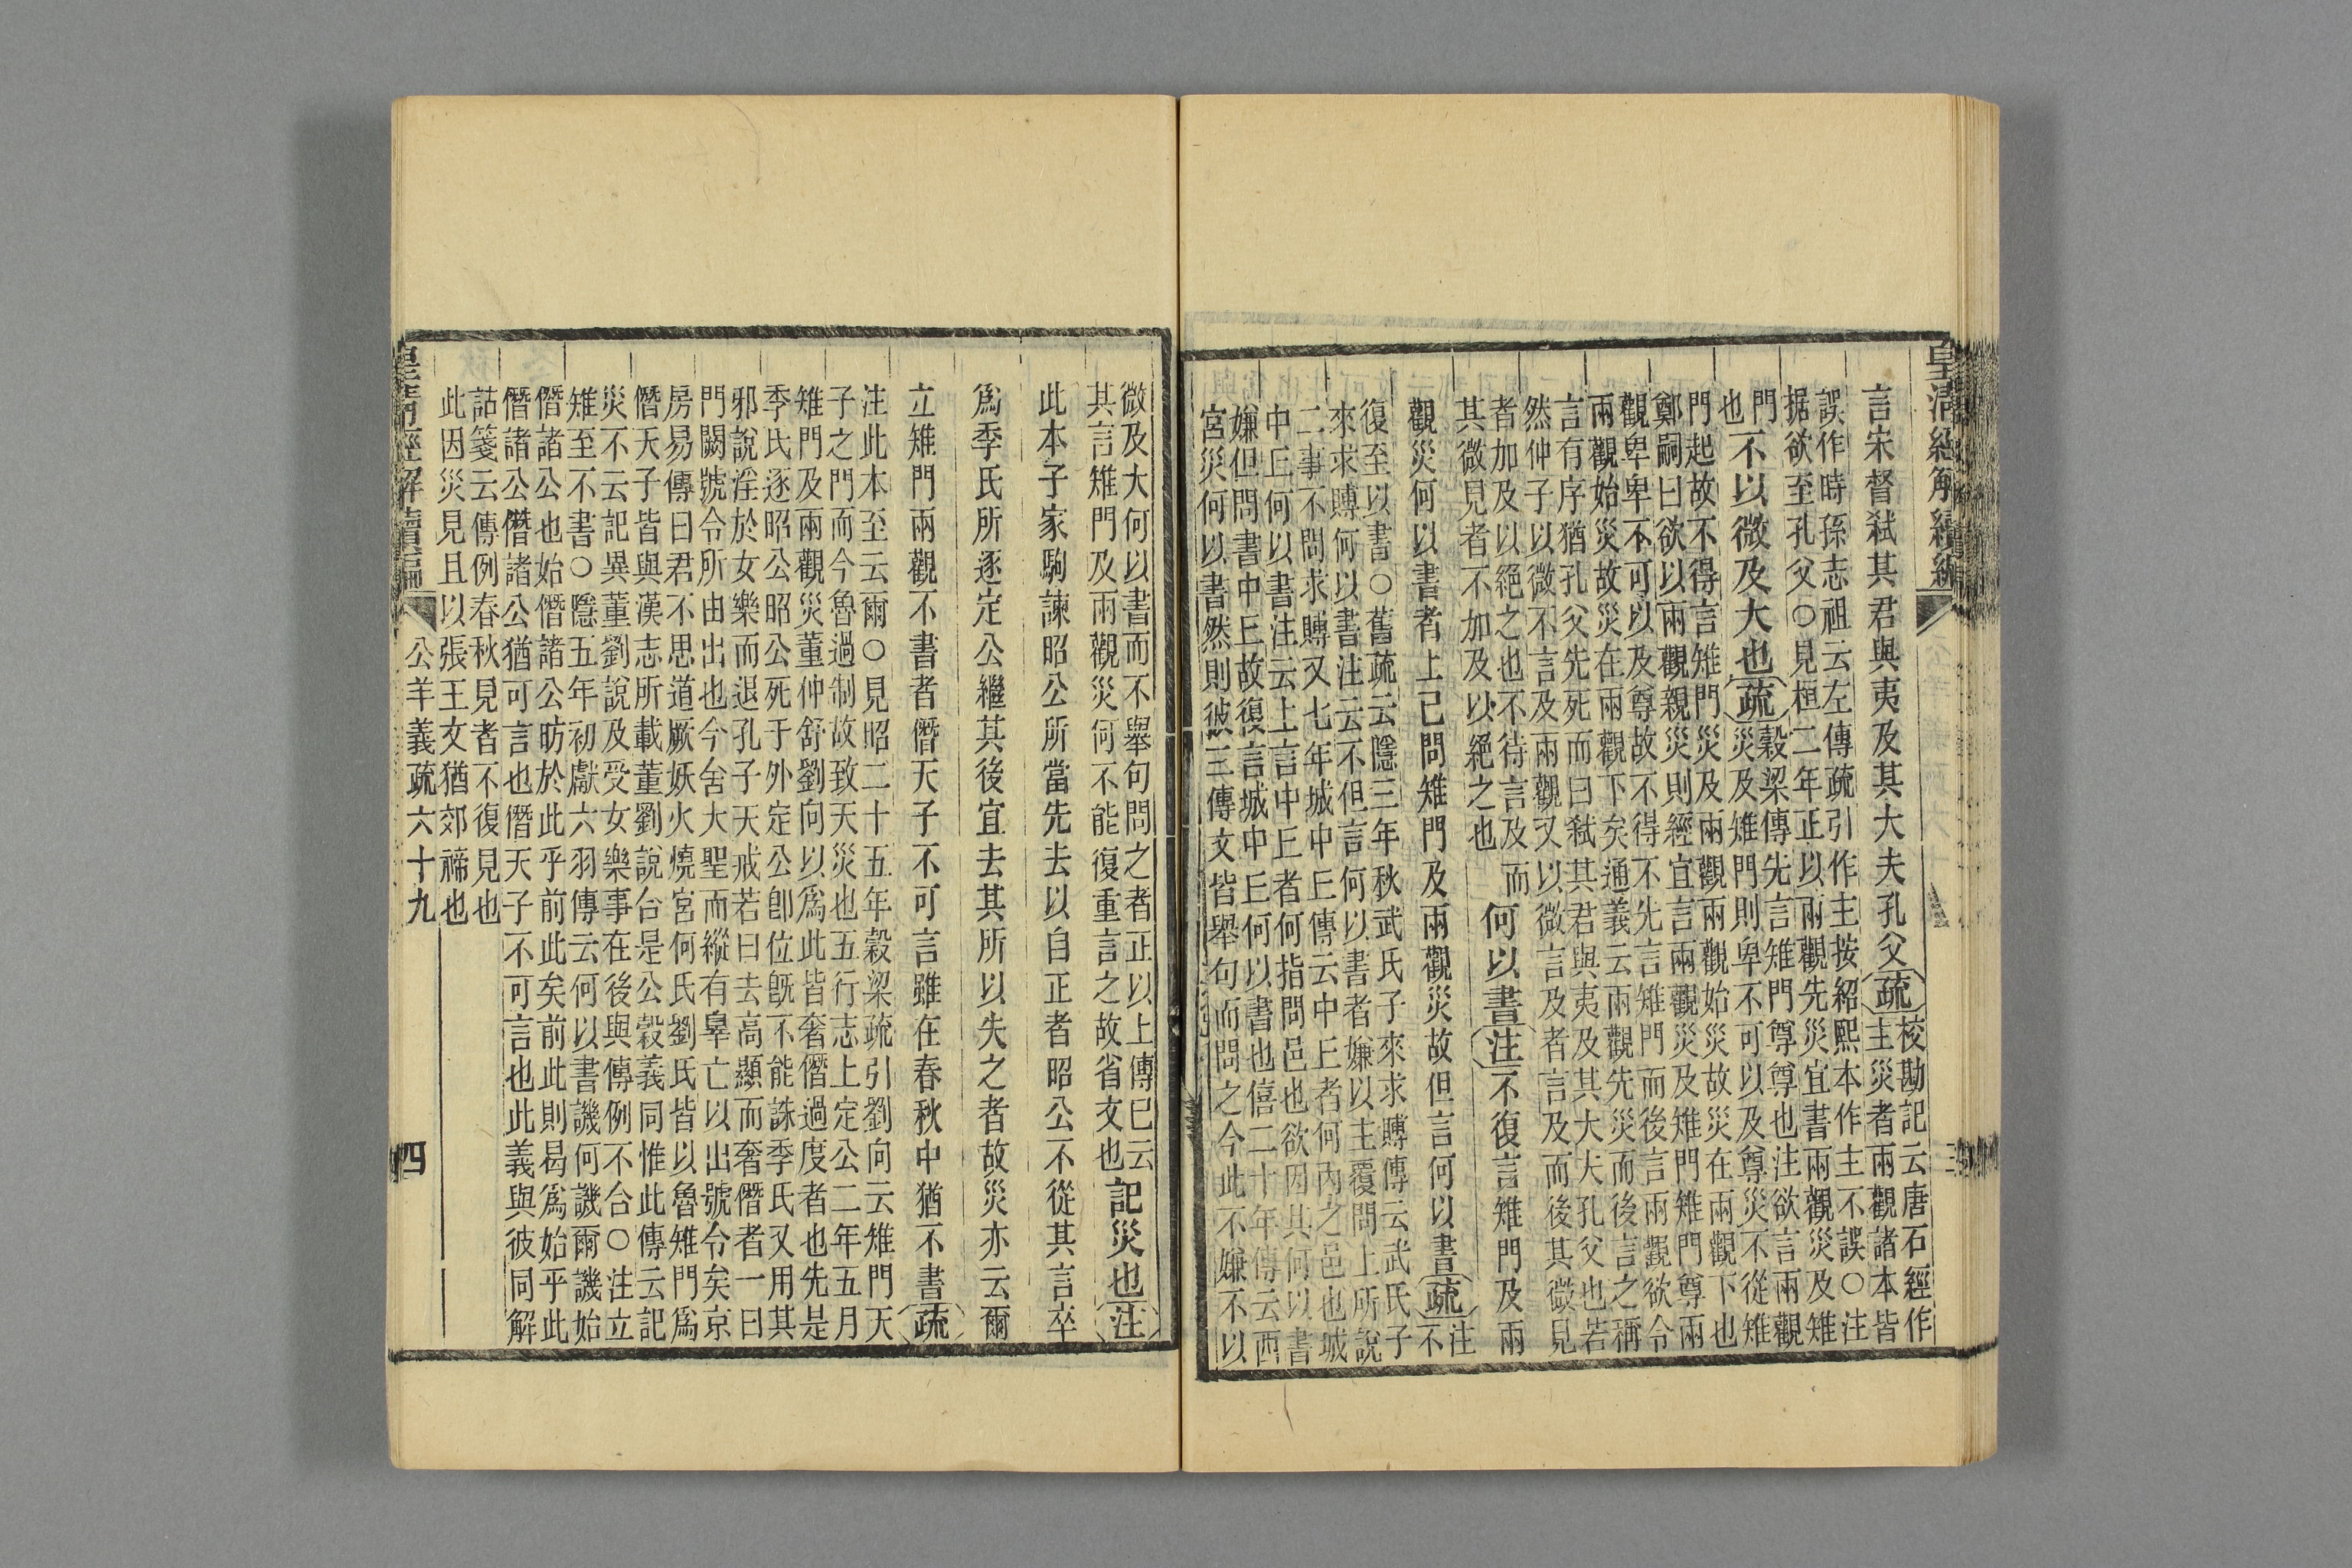 皇清經解續編
言宋督弒其君與夷及其大夫孔父疏校勘記云唐石經作
主災者兩觀諸本皆
誤作時孫志祖云左傳疏引作主按紹熙本作主不誤○注
据欲至孔父○見桓二年正以兩觀先災宜書兩觀災及雉
門
也不以微及大也疏穀梁傳先言雉門尊尊也注欲言兩觀
災及雉門則卑不可以及尊災不從雉
門起故不得言雉門災及兩觀兩觀始災故災在兩觀下也
鄭嗣曰欲以兩觀親災則經宜言兩觀災及雉門雉門尊兩
觀卑卑不可以及尊故不得不先言雉門而後言兩觀欲令
兩觀始災故災在兩觀下矣通義云兩觀先災而後言之稱
言有序猶孔父先死而曰弒其君與夷及其大夫孔父也若
然仲子以微不言及兩觀又以微言及者言及而後其微見
者加及以絕之也不待言及而
其微見者不加及以絕之也何以書注不復言雉門及兩
觀災何以書者上已問雉門及兩觀災故但言何以書疏注
不
復至以書○舊疏云隱三年秋武氏子來求賻傳云武氏子
來求賻何以書注云不但言何以書者嫌以主覆問上所說
二事不問求賻又七年城中丘傳云中丘者何內之邑也城
中丘何以書注云上言中丘者何指問邑也欲因其何以書
嫌但問書中丘故復言城中丘何以書也僖二十年傳云西
宮災何以書然則彼三傳文皆舉句而問之今此不嫌不以
微及大何以書而不舉句問之者正以上傳已云
其言雉門及兩觀災何不能復重言之故省文也記災也注
此本子家駒諫昭公所當先去以自正者昭公不從其言卒
爲季氏所逐定公繼其後宜去其所以失之者故災亦云爾
立雉門兩觀不書者僭天子不可言雖在春秋中猶不書疏
注此本至云爾○見昭二十五年穀梁疏引劉向云雉門天
子之門而今魯過制故致天災也五行志上定公二年五月
雉門及兩觀災董仲舒劉向以爲此皆奢僭過度者也先是
季氏逐昭公昭公死于外定公卽位旣不能誅季氏又用其
邪說淫於女樂而退孔子天戒若曰去高顯而奢僭者一曰
門闕號令所由出也今舍大聖而縱有辠亡以出號令矣京
房易傳曰君不思道厥妖火燒宮何氏劉氏皆以魯雉門爲
僭天子皆與漢志所載董劉說合是公穀義同惟此傳云記
災不云記異董劉說及受女樂事在後與傳例不合○注立
雉至不書○隱五年初獻六羽傳云何以書譏何譏爾譏始
僭諸公也始僭諸公昉於此乎前此矣前此則曷爲始乎此
僭諸公僭諸公猶可言也僭天子不可言也此義與彼同解
詁箋云傳例春秋見者不復見也
此因災見且以張王文猶郊禘也
皇清經解續編
公羊義疏六十九
四